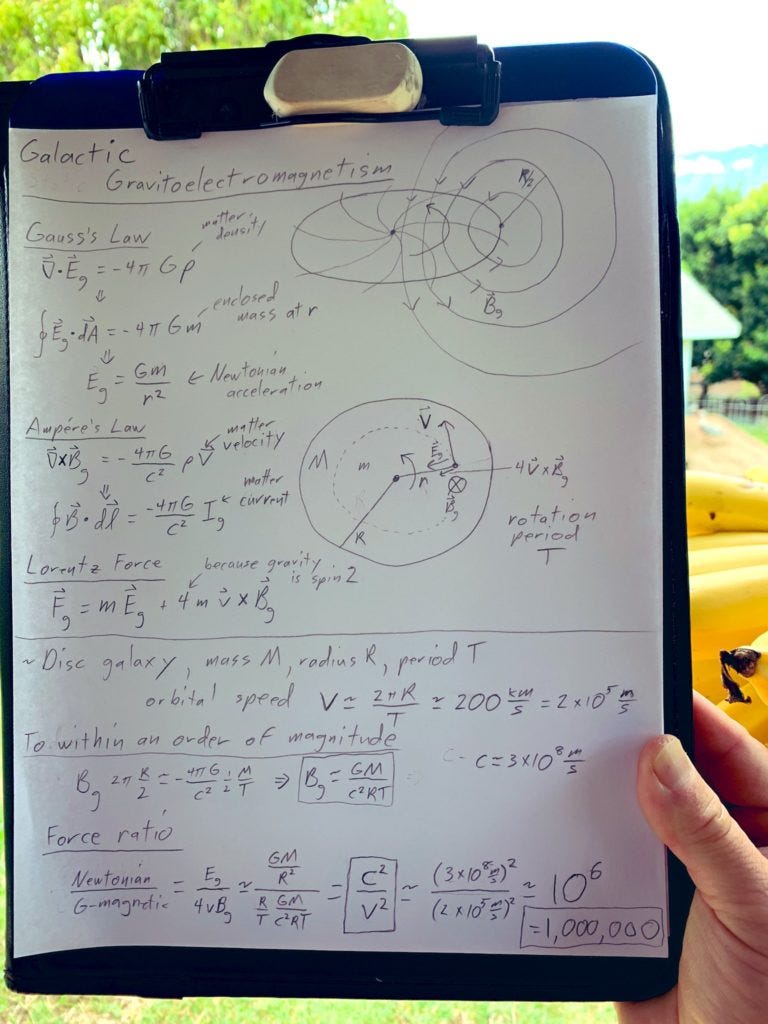 Galactic
Gravitoelectromagnetism
Gauss's Law
matter density
∇⃗·E⃗g = -4π Gρ
⇓
∮E⃗g·dA⃗ = -4π Gm
enclosed mass at r
⇓
Eg = Gm/r² ← Newtonian acceleration
R/2
B⃗g
Ampére's Law
∇⃗×B⃗g = -4πG/c² ρV⃗
matter velocity
⇓
∮B⃗·dl⃗ = -4πG/c² Ig
matter current
M
m
r
R
V⃗
E⃗g
B⃗g
4V⃗×B⃗g
rotation
period
T
Lorentz Force
because gravity
is spin 2
F⃗g = mE⃗g + 4m v⃗ × B⃗g
~ Disc galaxy, mass M, radius R, period T
orbital speed V ≃ 2πR/T ≃ 200 km/s = 2×10⁵ m/s
To within an order of magnitude
c = 3×10⁸ m/s
Bg 2π R/2 = -4πG/c² 1/2 M/T ⇒ Bg = GM/c²RT
Force ratio
Newtonian/G-magnetic = Eg/4vBg ≃ (GM/R²)/(R/T GM/c²RT) = C²/V² ≃ (3×10⁸ m/s)²/(2×10⁵ m/s)² ≃ 10⁶
= 1,000,000